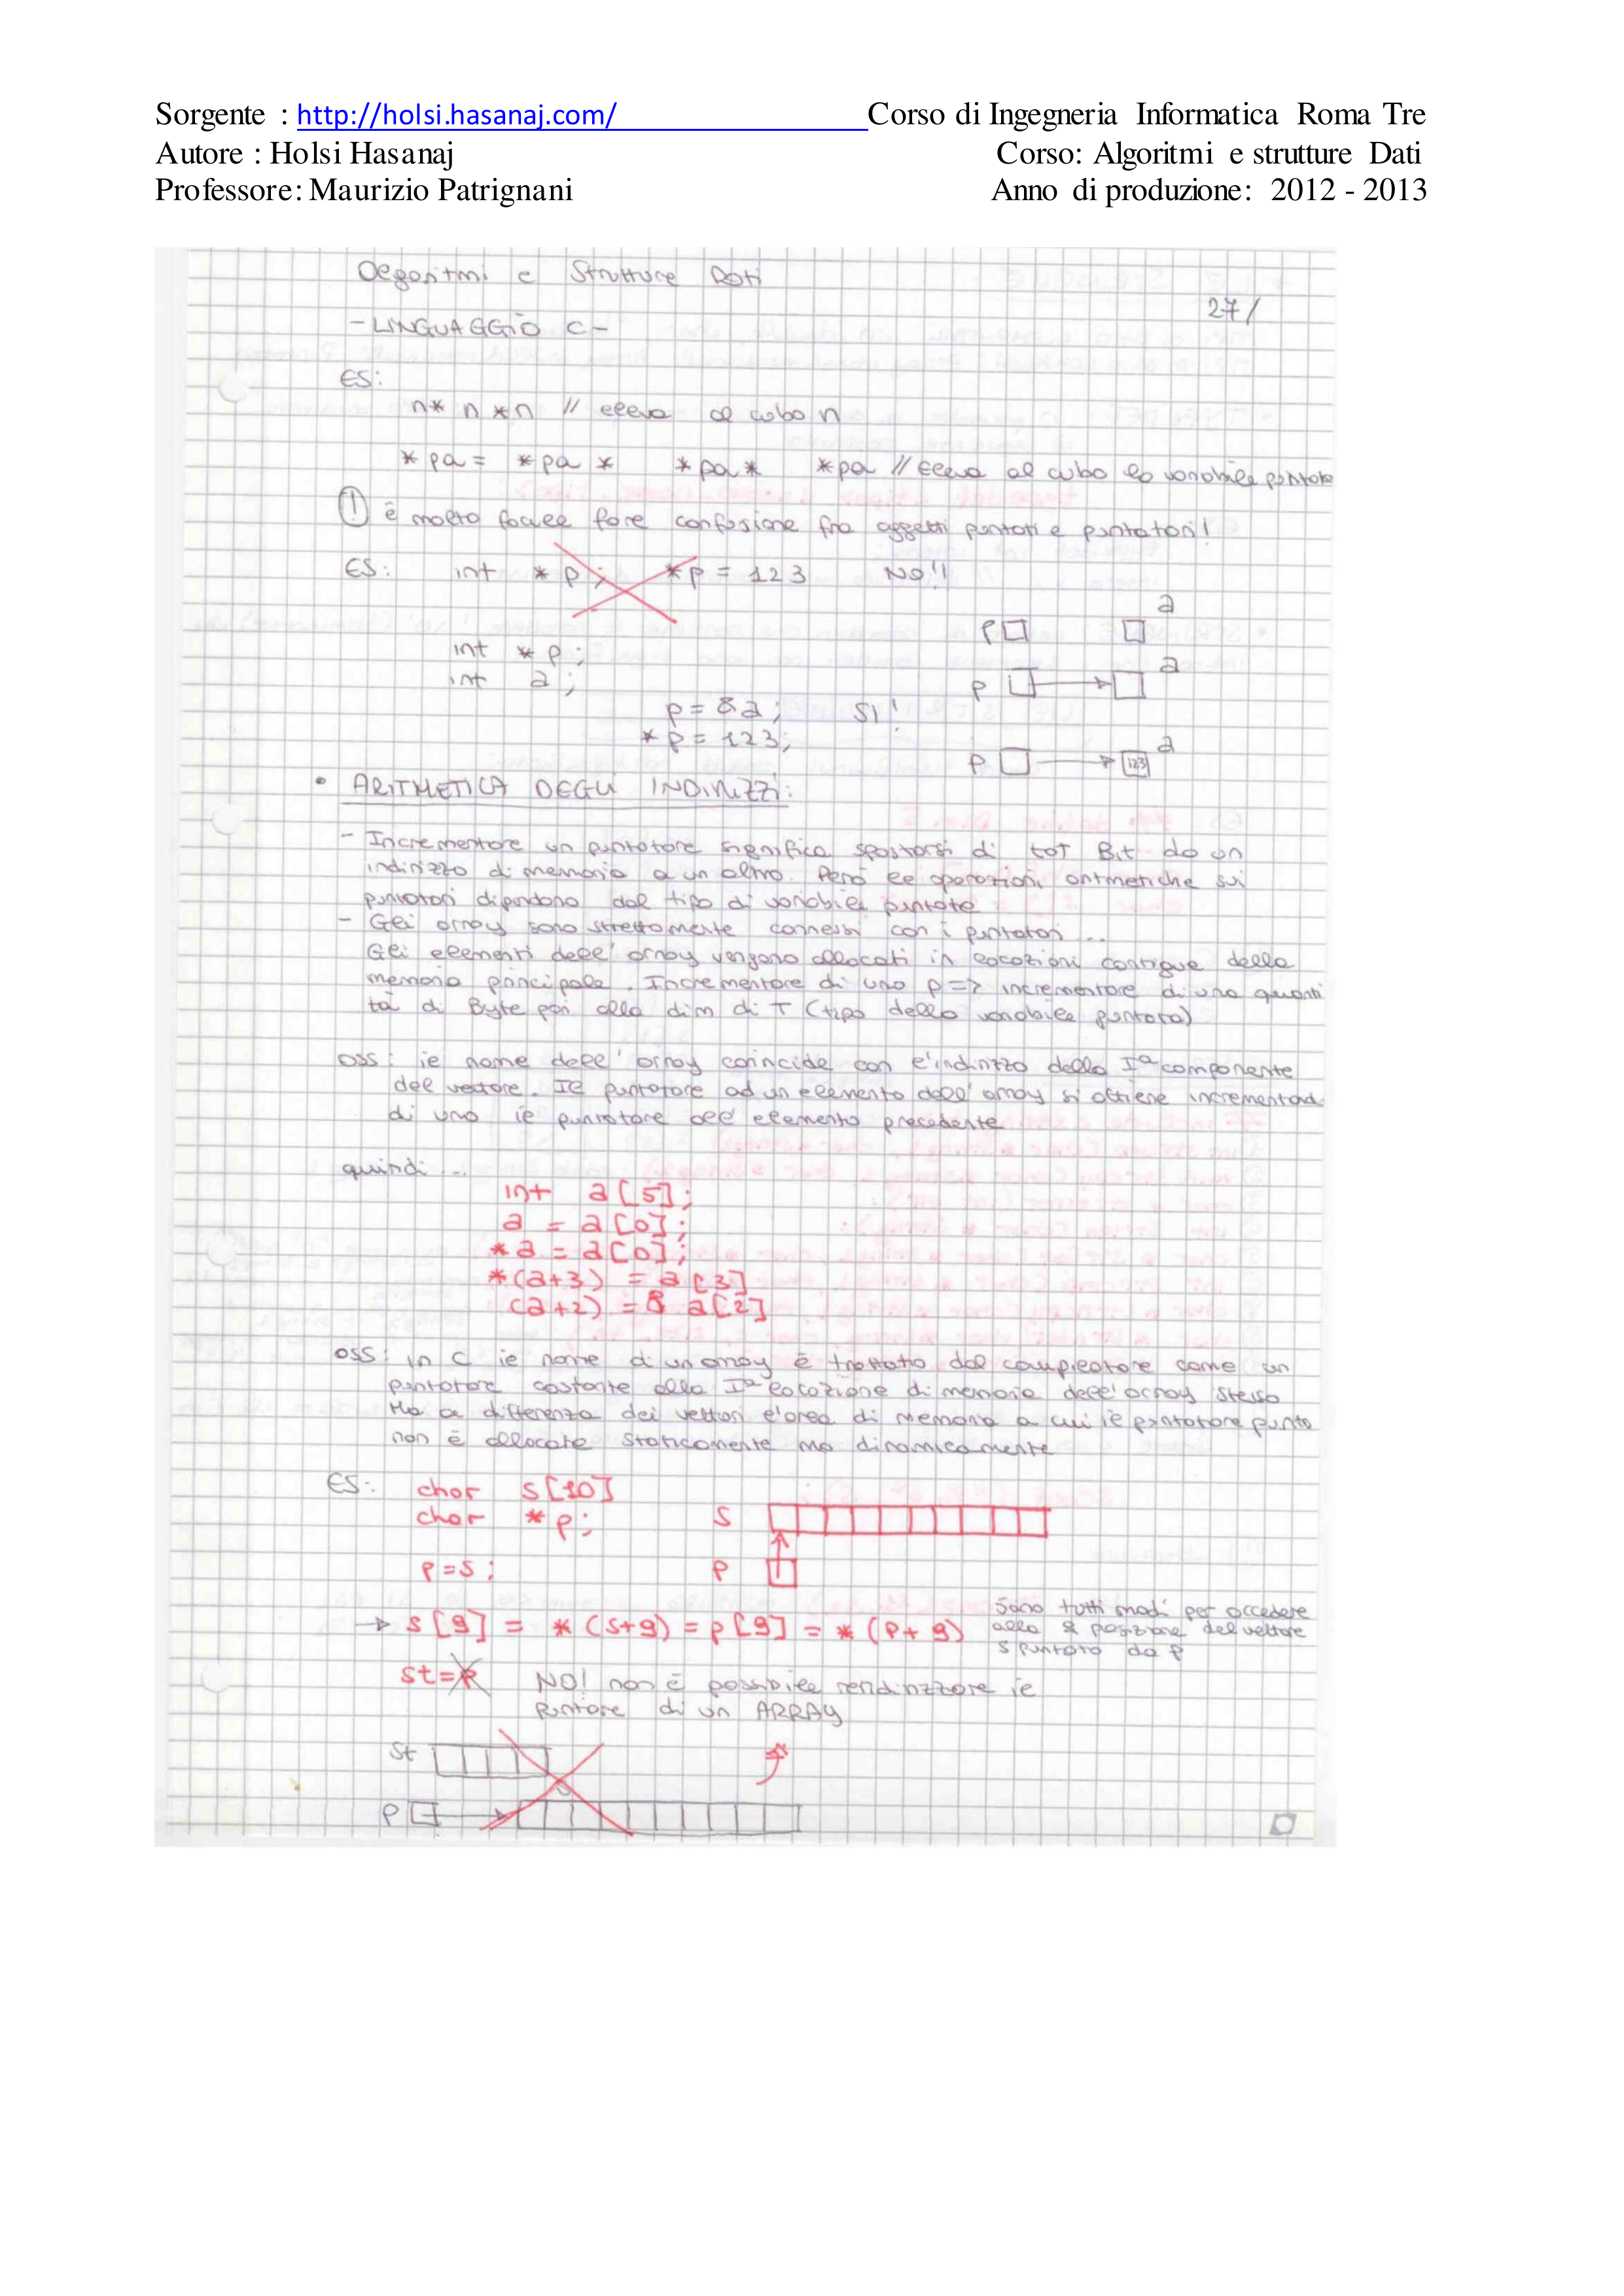 Sorgente : http://holsi.hasanaj.com/ Corso di Ingegneria Informatica Roma Tre
Autore : Holsi Hasanaj Corso: Algoritmi e strutture Dati
Professore: Maurizio Patrignani Anno di produzione: 2012 - 2013
Algoritmi e Strutture Dati
27/
- LINGUAGGIO C -
ES:
n* n *n // eleva al cubo n
*pa = *pa * *pa * *pa // eleva al cubo la variabile puntata
! è molto facile fare confusione fra oggetti puntati e puntatori!
ES: int *p; *p = 123 NO!!
a
p
int *p;
int a;
a
p
p = &a; SI!
*p = 123;
a
p 123
• ARITMETICA DEGLI INDIRIZZI:
- Incrementare un puntatore significa spostarsi di tot Bit da un
indirizzo di memoria a un altro. Però le operazioni aritmetiche sui
puntatori dipendono dal tipo di variabile puntate
- Gli array sono strettamente connessi con i puntatori ...
Gli elementi dell'array vengono allocati in locazioni contigue della
memoria principale. Incrementare di uno p => incrementare di una quanti
tà di Byte pari alla dim di T (tipo della variabile puntata)
oss: il nome dell'array coincide con l'indirizzo della Iª componente
del vettore. Il puntatore ad un elemento dell'array si ottiene incrementand
di uno il puntatore all'elemento precedente
quindi ...
int a[5];
a = a[0];
*a = a[0];
*(a+3) = a[3]
(a+2) = & a[2]
oss: in C il nome di un array è trattato dal compilatore come un
puntatore costante alla Iª locazione di memoria dell'array stesso
Ma a differenza dei vettori l'area di memoria a cui il puntatore punta
non è allocata staticamente ma dinamicamente
ES: char s[10]
char *p; s
p=s; p
→ s[9] = *(s+9) = p[9] = *(p+9) Sono tutti modi per accedere
alla 9 posizione del vettore
s puntato da p
st=p NO! non è possibile rendirizzare il
puntore di un ARRAY
st
p